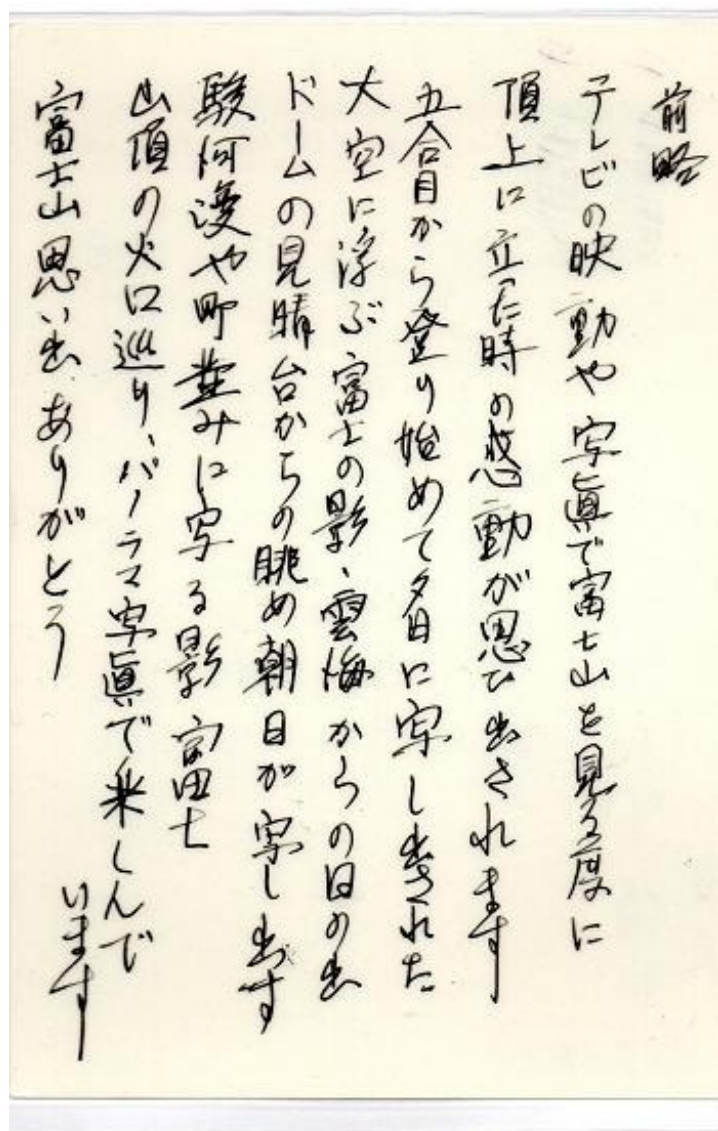 前略
テレビの映動や写真で富士山を見る度に
頂上に立った時の感動が思ひ出されます
五合目から登り始めて夕日に写し出された
大空に浮ぶ富士の影、雲海からの日の出
ドームの見晴台からの眺め朝日が写し出す
駿河湾や町並みに写る影富士
山頂の火口巡り、パノラマ写真で楽しんで
います
富士山思い出、ありがとう